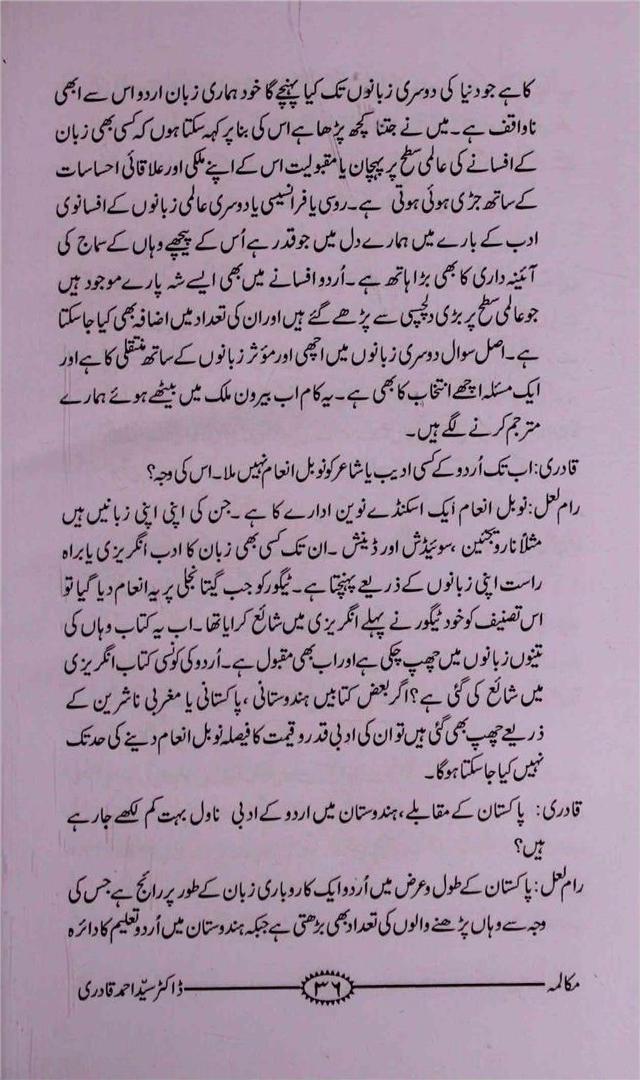 کا ہے جو دنیا کی دوسری زبانوں تک کیا پہنچے گا خود ہماری زبان اردو اس سے ابھی
ناواقف ہے۔ میں نے جتنا کچھ پڑھا ہے اس کی بنا پر کہہ سکتا ہوں کہ کسی بھی زبان
کے افسانے کی عالمی سطح پر پہچان یا مقبولیت اس کے اپنے ملکی اور علاقائی احساسات
کے ساتھ جڑی ہوئی ہوتی ہے۔ روسی یا فرانسیسی یا دوسری عالمی زبانوں کے افسانوی
ادب کے بارے میں ہمارے دل میں جو قدر ہے اُس کے پیچھے وہاں کے سماج کی
آئینہ داری کا بھی بڑا ہاتھ ہے۔ اُردو افسانے میں بھی ایسے شہ پارے موجود ہیں
جو عالمی سطح پر بڑی دلچسپی سے پڑھے گئے ہیں اور ان کی تعداد میں اضافہ بھی کیا جا سکتا
ہے۔ اصل سوال دوسری زبانوں میں اچھی اور مؤثر زبانوں کے ساتھ منتقلی کا ہے اور
ایک مسئلہ اچھے انتخاب کا بھی ہے۔ یہ کام اب بیرون ملک میں بیٹھے ہوئے ہمارے
مترجم کرنے لگے ہیں۔
قادری: اب تک اُردو کے کسی ادیب یا شاعر کو نوبل انعام نہیں ملا۔ اس کی وجہ؟
رام لعل: نوبل انعام ایک اسکنڈے نوین ادارے کا ہے۔ جن کی اپنی اپنی زبانیں ہیں
مثلاً نارویجئین، سوئیڈش اور ڈینش۔ ان تک کسی بھی زبان کا ادب انگریزی یا براہ
راست اپنی زبانوں کے ذریعے پہنچتا ہے۔ ٹیگور کو جب گیتانجلی پر یہ انعام دیا گیا تو
اس تصنیف کو خود ٹیگور نے پہلے انگریزی میں شائع کرایا تھا۔ اب یہ کتاب وہاں کی
تینوں زبانوں میں چھپ چکی ہے اور اب بھی مقبول ہے۔ اُردو کی کونسی کتاب انگریزی
میں شائع کی گئی ہے؟ اگر بعض کتابیں ہندوستانی، پاکستانی یا مغربی ناشرین کے
ذریعے چھپ بھی گئی ہیں تو ان کی ادبی قدر و قیمت کا فیصلہ نوبل انعام دینے کی حد تک
نہیں کیا جا سکتا ہوگا۔
قادری: پاکستان کے مقابلے، ہندوستان میں اردو کے ادبی ناول بہت کم لکھے جا رہے
ہیں؟
رام لعل: پاکستان کے طول و عرض میں اُردو ایک کاروباری زبان کے طور پر رائج ہے جس کی
وجہ سے وہاں پڑھنے والوں کی تعداد بھی بڑھتی ہے جبکہ ہندوستان میں اُردو تعلیم کا دائرہ
مکالمہ ۳۶ ڈاکٹر سیّد احمد قادری